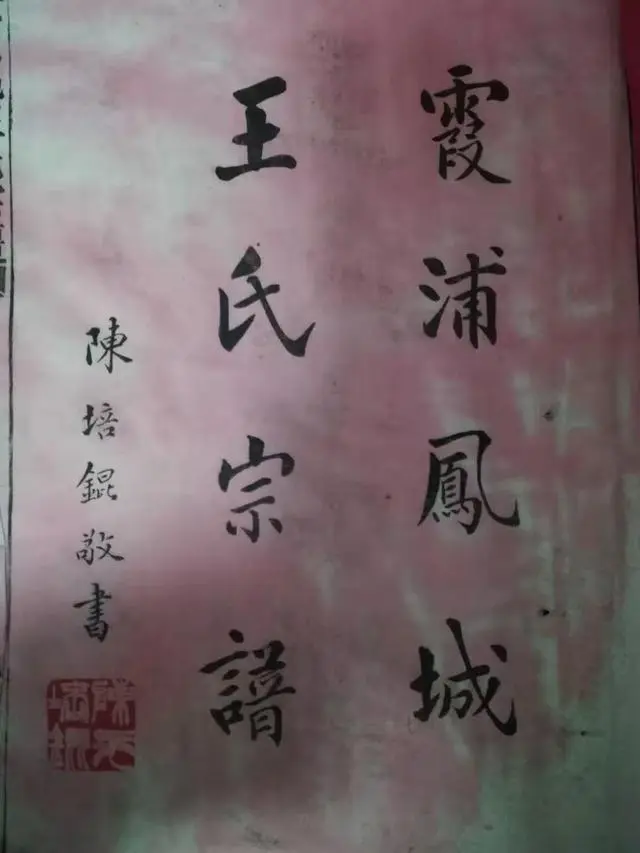 霞浦鳳城
王氏宗譜
陳培錕敬書